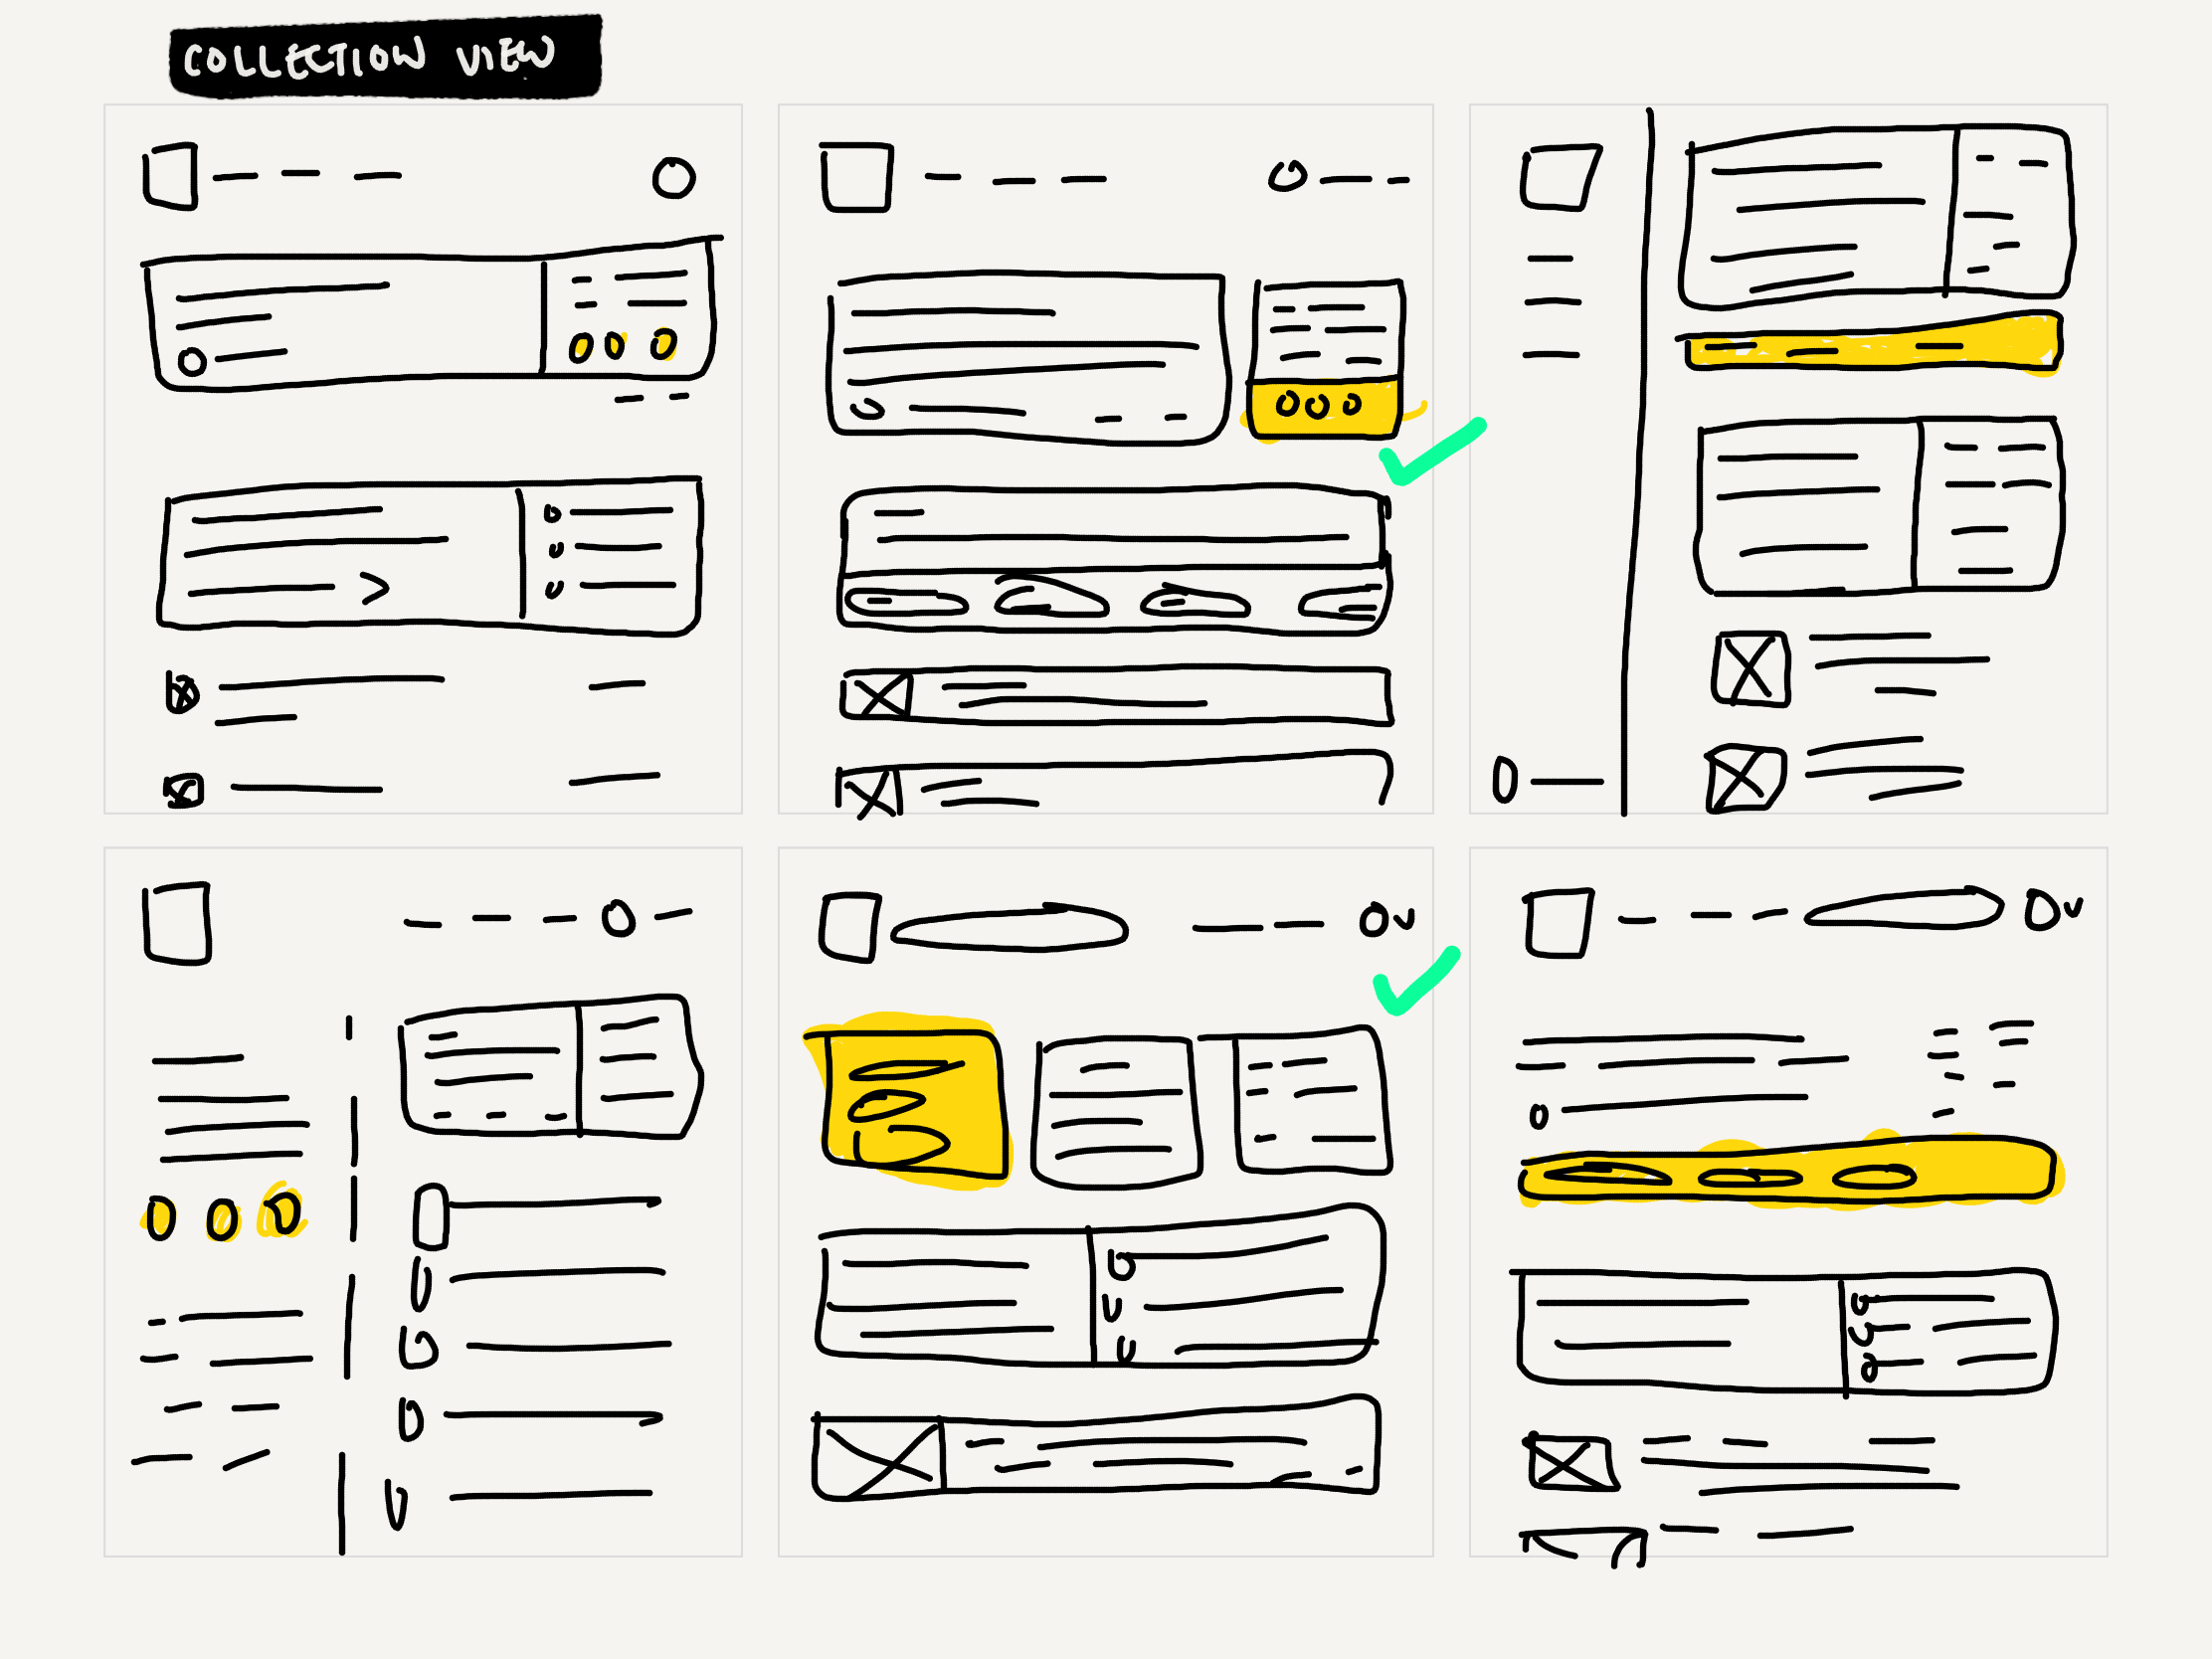 COLLECTION VIEW